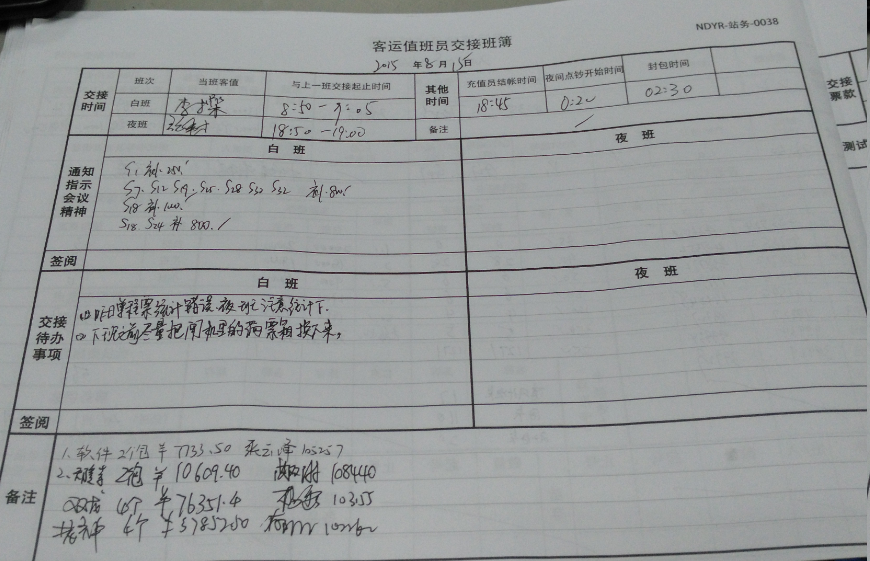 NDYR-站务-0038
客运值班员交接班簿
2015 年 8 月 15 日
交接时间 班次 当班客值 与上一班交接起止时间 其他时间 充值员结帐时间 夜间点钞开始时间 封包时间
白班 8:50-9:05 18:45 0:20 02:30
夜班 18:50-19:00 备注 /
白 班 夜 班
通知指示会议精神
S1 补
S7. S12 S19. S25 S28 S30 S32 补.800.
S18 补
S18 S24 补 800. /
签阅
白 班 夜 班
交接待办事项
(1) 昨日单程票统计错误,夜班注意统计下.
(2) 下班之前尽量把闸机里的两票箱换下来。
签阅
备注
1. 软件 2个包 ¥7733.50 张云峰 105257
2. 2包 ¥10609.40 108440
4个 ¥76351.4 10355
4个 ¥57852.50
交接票款
测试